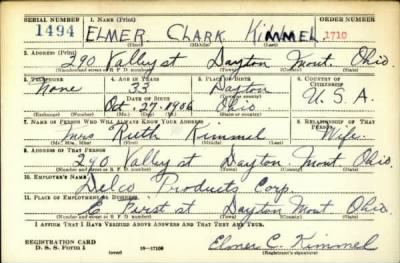 SERIAL NUMBER 1. NAME (Print) ORDER NUMBER
1494 ELMER CLARK KIMMEL 1710
(First) (Middle) (Last)
2. ADDRESS (Print)
290 Valley st Dayton Mont. Ohio.
(Number and street or R. F. D. number) (Town) (County) (State)
3. TELEPHONE 4. AGE IN YEARS 5. PLACE OF BIRTH 6. COUNTRY OF CITIZENSHIP
None 33 Dayton
DATE OF BIRTH (Town or county) U.S.A.
Oct. 27-1906 Ohio.
(Exchange) (Number) (Mo.) (Day) (Yr.) (State or country)
7. NAME OF PERSON WHO WILL ALWAYS KNOW YOUR ADDRESS 8. RELATIONSHIP OF THAT PERSON
Mrs Ruth Kimmel Wife.
(Mr., Mrs., Miss) (First) (Middle) (Last)
9. ADDRESS OF THAT PERSON
290 Valley st Dayton Mont Ohio.
(Number and street or R. F. D. number) (Town) (County) (State)
10. EMPLOYER'S NAME
Delco Products Corp.
11. PLACE OF EMPLOYMENT OR BUSINESS
E First st Dayton Mont. Ohio.
(Number and street or R. F. D. number) (Town) (County) (State)
I AFFIRM THAT I HAVE VERIFIED ABOVE ANSWERS AND THAT THEY ARE TRUE.
REGISTRATION CARD
D. S. S. Form 1 (over) 16—17105 Elmer C. Kimmel
(Registrant's signature)